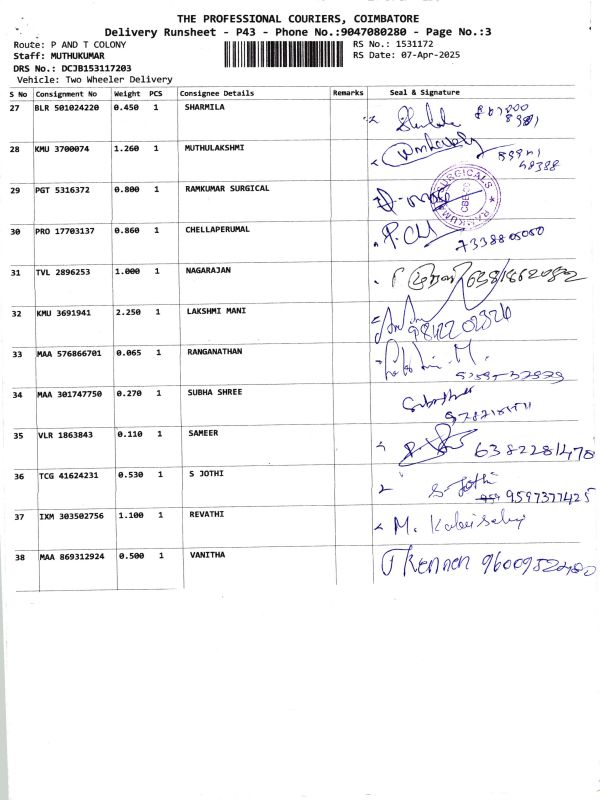 THE PROFESSIONAL COURIERS, COIMBATORE
Delivery Runsheet - P43 - Phone No.:9047080280 - Page No.:3
Route: P AND T COLONY RS No.: 1531172
Staff: MUTHUKUMAR RS Date: 07-Apr-2025
DRS No.: DCJB153117203
Vehicle: Two Wheeler Delivery
S No Consignment No Weight PCS Consignee Details Remarks Seal & Signature
27 BLR 501024220 0.450 1 SHARMILA
28 KMU 3700074 1.260 1 MUTHULAKSHMI
48388
29 PGT 5316372 0.800 1 RAMKUMAR SURGICAL
30 PRO 17703137 0.860 1 CHELLAPERUMAL
7338805050
31 TVL 2896253 1.000 1 NAGARAJAN
32 KMU 3691941 2.250 1 LAKSHMI MANI
33 MAA 576866701 0.065 1 RANGANATHAN
34 MAA 301747750 0.270 1 SUBHA SHREE
35 VLR 1863843 0.110 1 SAMEER 6382281478
36 TCG 41624231 0.530 1 S JOTHI S. Jothi
9597377425
37 IXM 303502756 1.100 1 REVATHI M.
38 MAA 869312924 0.500 1 VANITHA J Kennen